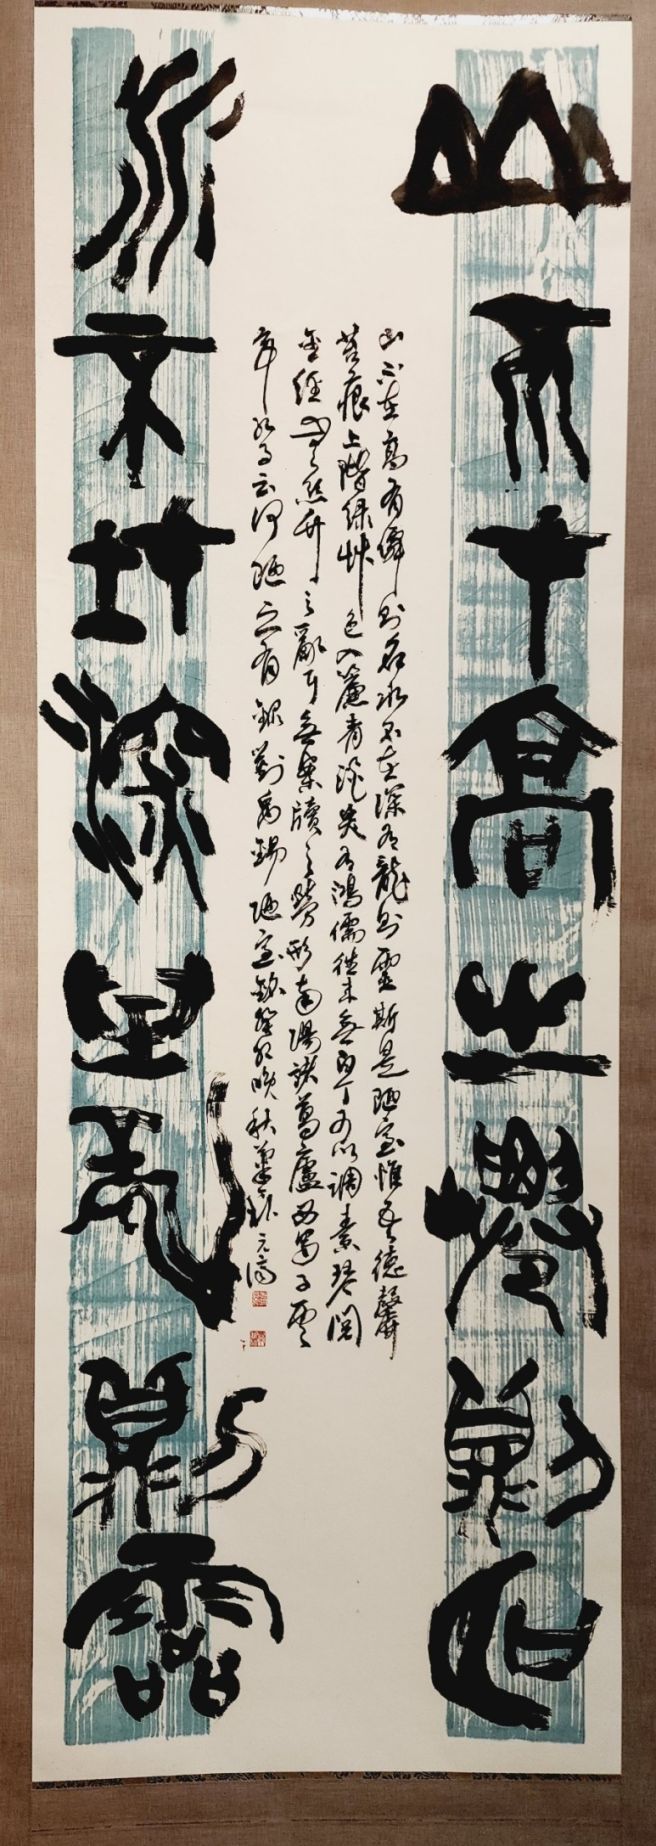 山不才高㞢僊則名
山不在高有僊則名水不在深有龍則靈斯是陋室惟吾德馨
苔痕上階綠艸色入簾青談笑有鴻儒往來無白丁可以調素琴閱
金經無絲竹之亂耳無案牘之勞形南陽諸葛廬西蜀子雲
亭孔子云何陋之有 錄劉禹錫陋室銘 晚秋 元
水不在深㞢龍則霝